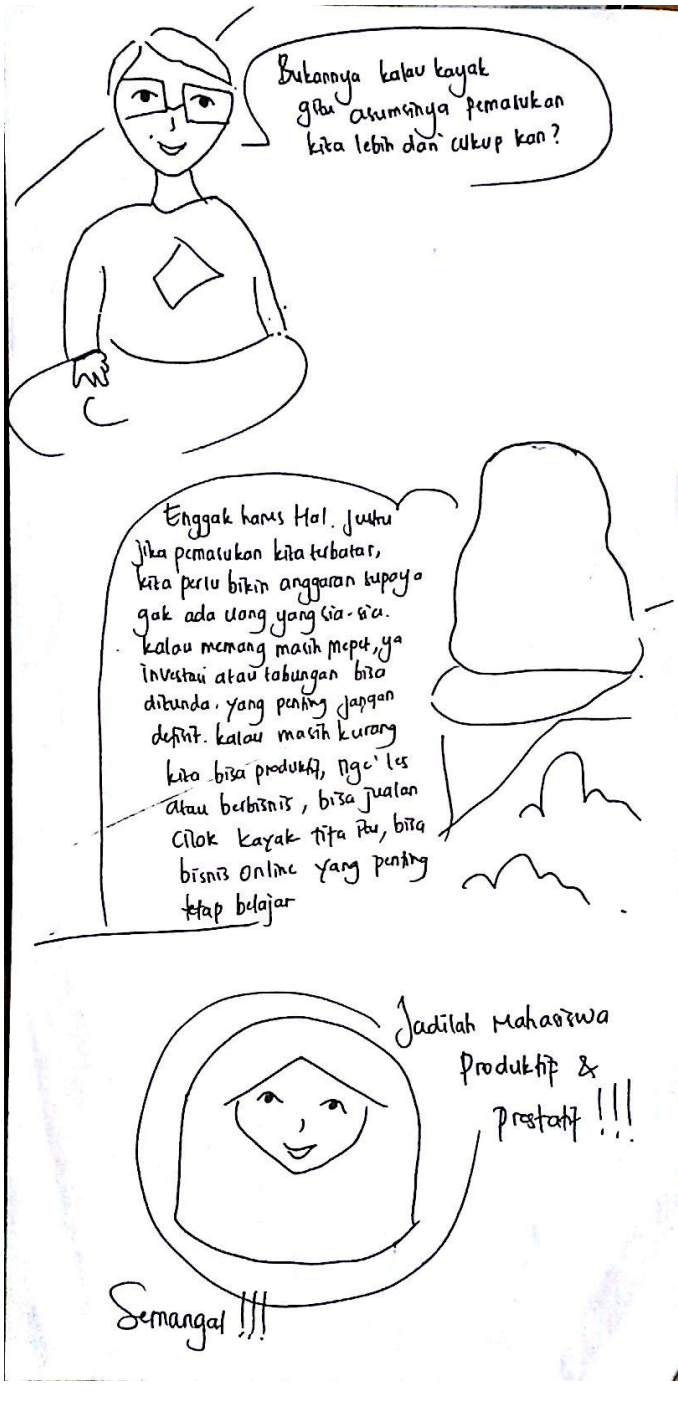 Bukannya kalau kayak
gitu asumsinya pemasukan
kita lebih dari cukup kan?
Enggak harus Hal. Justru
jika pemasukan kita terbatas,
kita perlu bikin anggaran supaya
gak ada uang yang sia-sia.
kalau memang masih mepet, ya
investasi atau tabungan bisa
ditunda. yang penting jangan
defisit. kalau masih kurang
kita bisa produktif, nge'les
atau berbisnis, bisa jualan
cilok kayak tita itu, bisa
bisnis online yang penting
tetap belajar
Jadilah Mahasiswa
Produktif &
Prestatif !!!
Semangat !!!